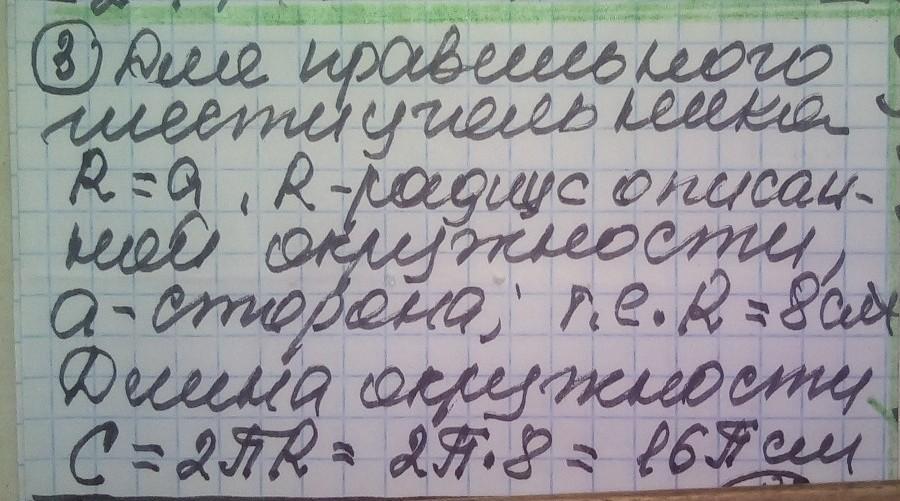 3 Для правильного
шестиугольника
R = a, R - радиус описан-
ной окружности,
a - сторона, т.е. R = 8 см
Длина окружности
C = 2πR = 2π·8 = 16π см